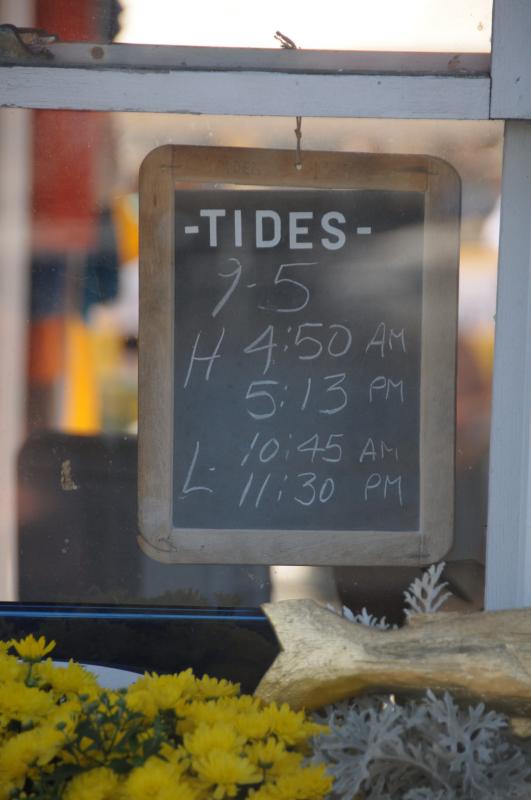 -TIDES-
9-5
H 4:50 AM
5:13 PM
L 10:45 AM
11:30 PM